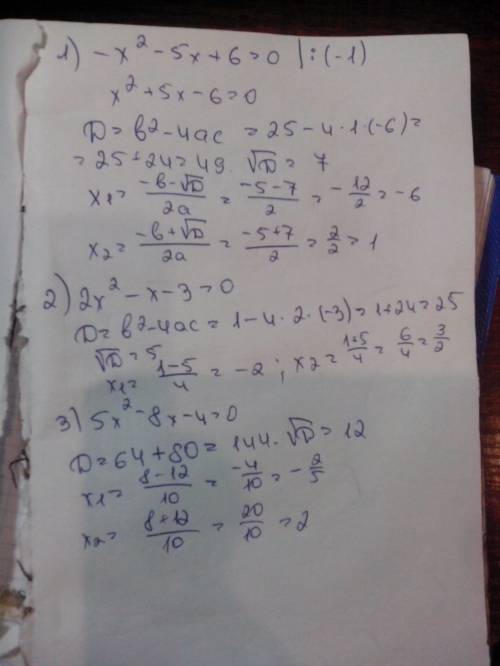 1) -x² - 5x + 6 = 0 |:(-1)
x² + 5x - 6 = 0
D = b² - 4ac = 25 - 4·1·(-6) =
= 25 + 24 = 49. √D = 7
x₁ = (-b-√D)/2a = (-5-7)/2 = -12/2 = -6
x₂ = (-b+√D)/2a = (-5+7)/2 = 2/2 = 1
2) 2x² - x - 3 = 0
D = b² - 4ac = 1 - 4·2·(-3) = 1 + 24 = 25
√D = 5
x₁ = (1-5)/4 = -2; x₂ = (1+5)/4 = 6/4 = 3/2
3) 5x² - 8x - 4 = 0
D = 64 + 80 = 144. √D = 12
x₁ = (8-12)/10 = -4/10 = -2/5
x₂ = (8+12)/10 = 20/10 = 2